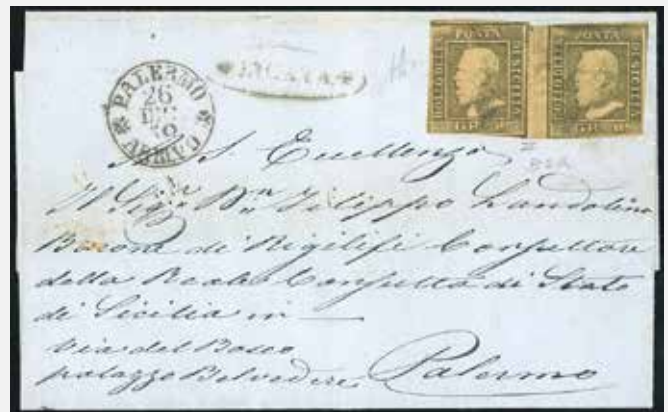 PALERMO
26
ARRIVO
LICATA
BOLLO DELLA POSTA DI SICILIA
GRANO
BOLLO DELLA POSTA DI SICILIA
GRANO
S. Eccellenza
Il Sigr. Bn. Filippo Landolina
Barone di Rigilifi Consultore
della Reale Consulta di Stato
di Sicilia in
Via del Bosco
palazzo Belvedere Palermo